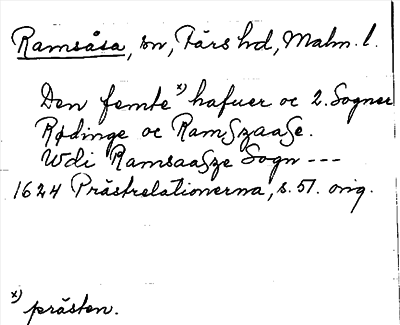 Ramsåsa, sn, Färs hd, Malm. l.
Den femte x) hafuer oc 2. Sogner
Rødinge oc RamSzaaSe.
Wdi RamsaaSze Sogn ---
1624 Prästrelationerna, s. 57. orig.
x) prästen.